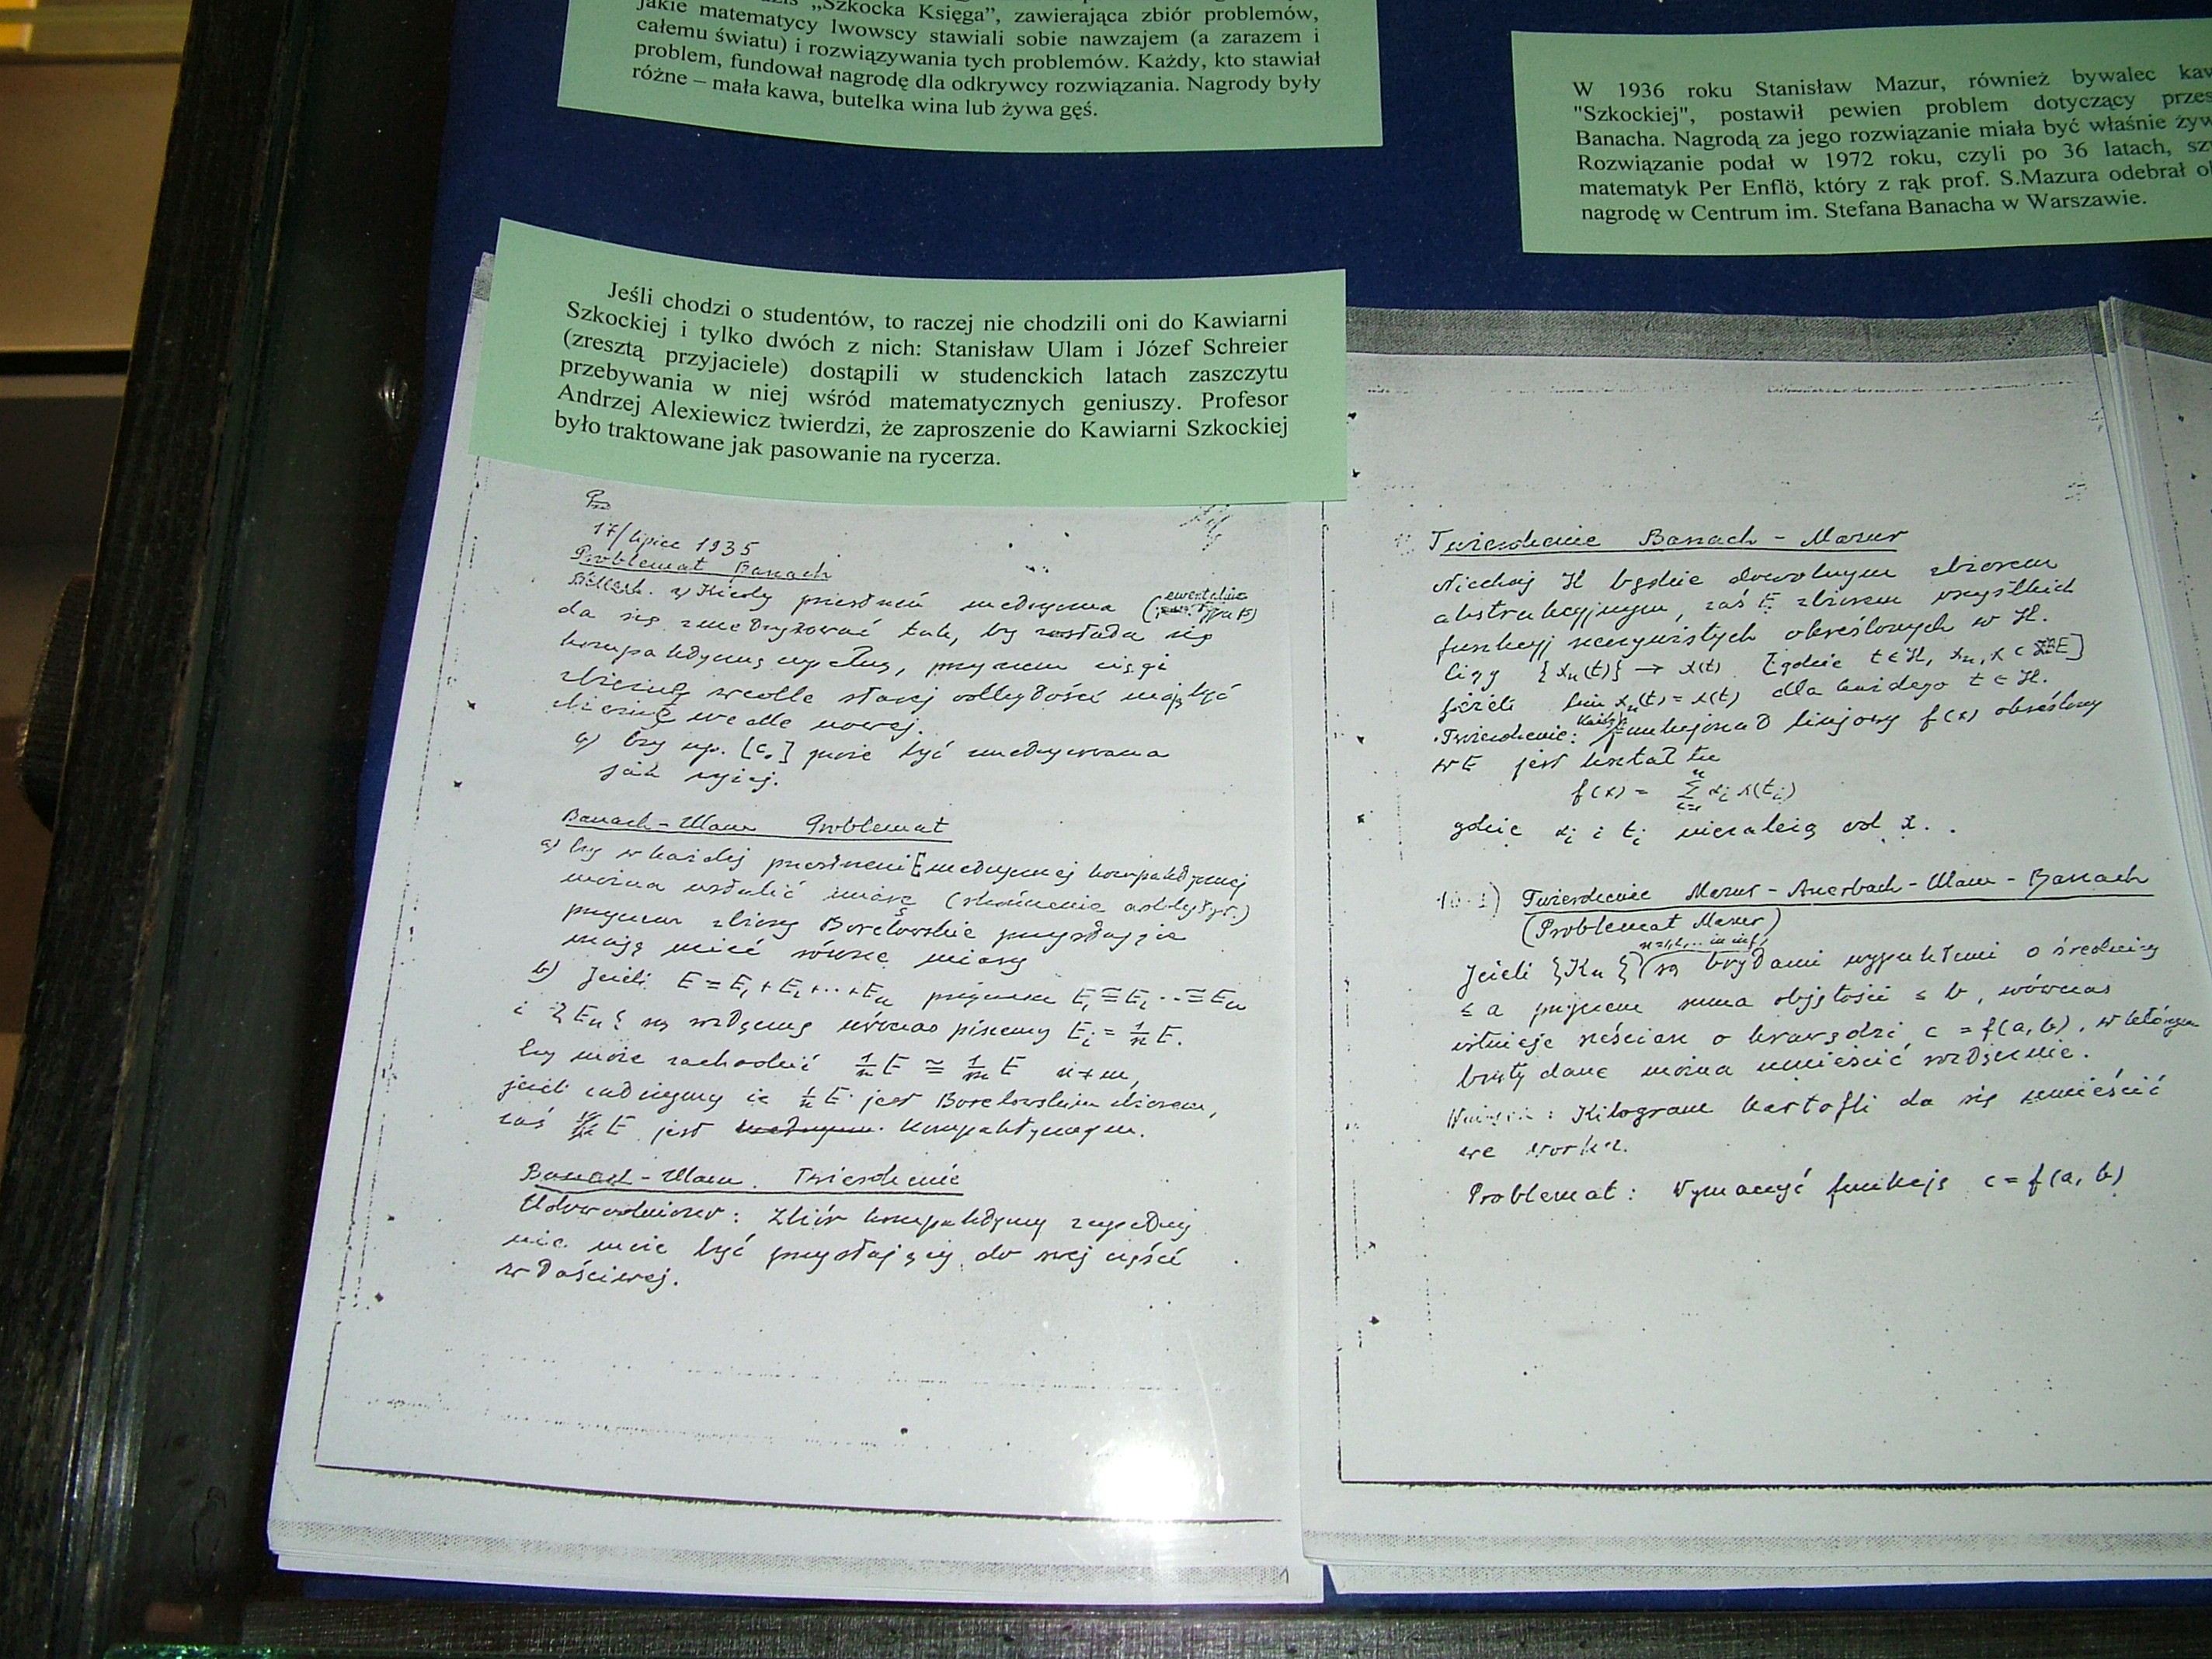 „Szkocka Księga”, zawierająca zbiór problemów,
jakie matematycy lwowscy stawiali sobie nawzajem (a zarazem i
całemu światu) i rozwiązywania tych problemów. Każdy, kto stawiał
problem, fundował nagrodę dla odkrywcy rozwiązania. Nagrody były
różne – mała kawa, butelka wina lub żywa gęś.
W 1936 roku Stanisław Mazur, również bywalec
"Szkockiej", postawił pewien problem dotyczący
Banacha. Nagrodą za jego rozwiązanie miała być właśnie
Rozwiązanie podał w 1972 roku, czyli po 36 latach,
matematyk Per Enflö, który z rąk prof. S.Mazura odebrał
nagrodę w Centrum im. Stefana Banacha w Warszawie.
Jeśli chodzi o studentów, to raczej nie chodzili oni do Kawiarni
Szkockiej i tylko dwóch z nich: Stanisław Ulam i Józef Schreier
(zresztą przyjaciele) dostąpili w studenckich latach zaszczytu
przebywania w niej wśród matematycznych geniuszy. Profesor
Andrzej Alexiewicz twierdzi, że zaproszenie do Kawiarni Szkockiej
było traktowane jak pasowanie na rycerza.
17/lipiec 1935
Problemat Banach
Kiedy przestrzeń metryczna (ewentualnie typu B)
da się zmetryzować tak, by stała się
kompaktyczną zupełną, przyczem ciągi
zbieżne wedle starej odległości mają być
zbieżne wedle nowej.
Czy np. [c₀] może być zmetryzowana
jak wyżej.
Banach - Ulam Problemat
a) Czy w każdej przestrzeni E metrycznej kompaktycznej
można ustalić miarę (skończenie addyt.)
przyczem zbiory Borelowskie przystające
mają mieć równe miary
b) Jeżeli E = E₁ + E₂ + ... + Eₙ przyczem E₁ ≅ E₂ ... ≅ Eₙ
i {Eₙ} są rozłączne wówczas piszemy Eᵢ = 1/n E.
Czy może zachodzić 1/n E ≅ 1/m E n ≠ m,
jeżeli 1/n E jest Borelowskim zbiorem,
zaś E jest kompaktycznym.
Banach - Ulam. Twierdzenie
Zbiór kompaktyczny
nie może być przystający do swej części
właściwej.
Twierdzenie Banach - Mazur
Niechaj H będzie dowolnym zbiorem
abstrakcyjnym, zaś E zbiorem wszystkich
funkcyj rzeczywistych określonych w H.
{xₙ(t)} → x(t) [gdzie t ∈ H, xₙ, x ∈ E]
jeżeli lim xₙ(t) = x(t) dla każdego t ∈ H.
Twierdzenie: Każdy funkcjonał linjowy f(x) określony
w E jest kształtu
f(x) = Σ αᵢ x(tᵢ)
gdzie αᵢ i tᵢ niezależą od x.
10.1) Twierdzenie Mazur - Auerbach - Ulam - Banach
(Problemat Mazur)
Jeżeli {Kₙ} są bryłami wypukłemi o średnicy
≤ a przyczem suma objętości ≤ b, wówczas
istnieje sześcian o krawędzi c = f(a, b), w którym
bryły dane można umieścić rozłącznie.
Wniosek: Kilogram kartofli da się umieścić
we worku.
Problemat: Wyznaczyć funkcję c = f(a, b)
1